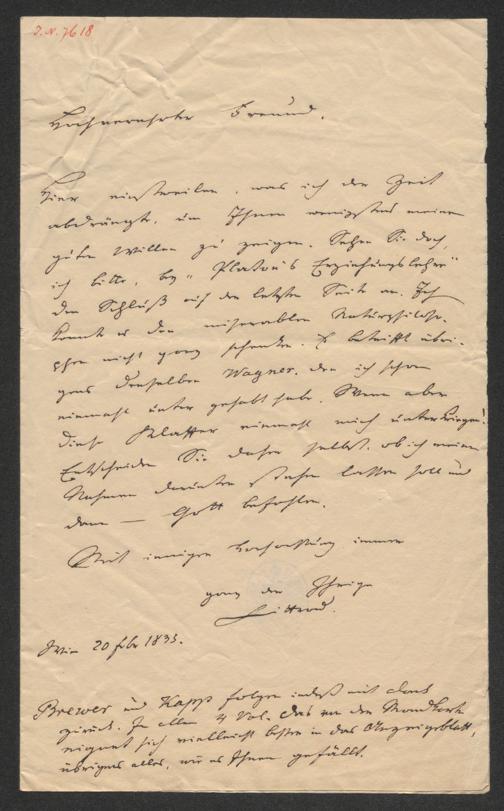 J. N. 7618
Hochverehrter Freund.
Hier einstweilen, was ich der Zeit
abdrängte, um Ihnen wenigstens meinen
guten Willen zu zeigen. Sehen Sie doch,
ich bitte, bey „Platons Erziehungslehre“
den Schluß auf der letzten Seite an. Ich
konnte es dem miserablen Naturphiloso-
phen nicht ganz schenken. Es betrifft übri-
gens denselben Wagner, den ich schon
einmahl unter gehabt habe. Wenn aber
diese Klaffer einmahl mich unterkriegen!
Entscheiden Sie daher selbst, ob ich meinen
Nahmen darunter stehen lassen soll und
dann — Gott befohlen.
Mit inniger Hochachtung immer
ganz der Ihrige
Littrow.
Wien 20 febr 1833.
Brewer und Kapp folgen indeß mit Dank
zurück. In allen 4 Vol. Das von der Mondkarte
eignet sich vielleicht besser in das Anzeigeblatt,
übrigens alles, wie es Ihnen gefällt.